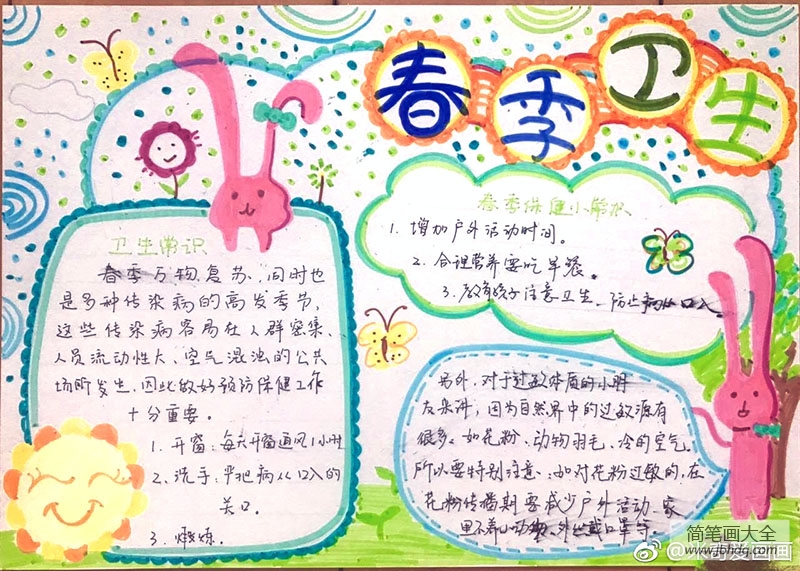 春季卫生
卫生常识
春季万物复苏、同时也
是多种传染病的高发季节，
这些传染病容易在人群密集、
人员流动性大、空气混浊的公共
场所发生，因此做好预防保健工作
十分重要。
1. 开窗：每天开窗通风1小时
2、洗手：严把病从口入的
关口。
3. 锻炼.
春季保健小常识
1. 增加户外活动时间。
2. 合理营养要吃早餐。
3. 教育孩子注意卫生、防止病从口入。
另外，对于过敏体质的小朋
友来讲，因为自然界中的过敏源有
很多、如花粉、动物羽毛、冷的空气。
所以要特别注意、如对花粉过敏的，在
花粉传播期要减少户外活动、家
里不养小动物、外出戴口罩等。
简笔画大全
www.jbhdq.com